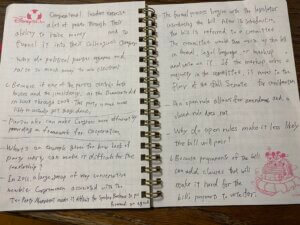 Disneyland
Congressional leaders exercise
a lot of power through their
ability to raise money and to
funnel it into their colleagues
- Why do political parties organize and
not to so much money to win elections?
- Because if one of the parties controls both
houses and the presidency, as the Democrats did
in 2009 through 2010. This party is more
likely to actually get things done.
- Parties also can make Congress more efficient by
providing a framework for cooperation.
- What's an example given for how lack of
party unity can make it difficult for the
leadership?
- In 2015 a large group of very conservative
Republican Congressmen associated with the
Tea Party Movement made it difficult for Speaker Boehner to put
forward an agenda
The formal process begins with the legislator
introducing the bill. After its introduction,
the bill is referred to a committee.
The committee would then mark up the bill
in formal legal language, or "markup"
and vote on it. If the markup wins a
majority in the committee, it moves to the
floor of the full Senate for consideration
- An open rule allows for amendments and a
closed rule does not.
- Why do open rules make it less likely
the bill will pass?
- Because proponents of the bill
can add clauses that will
make it hard for the
bill's proponents to vote for.